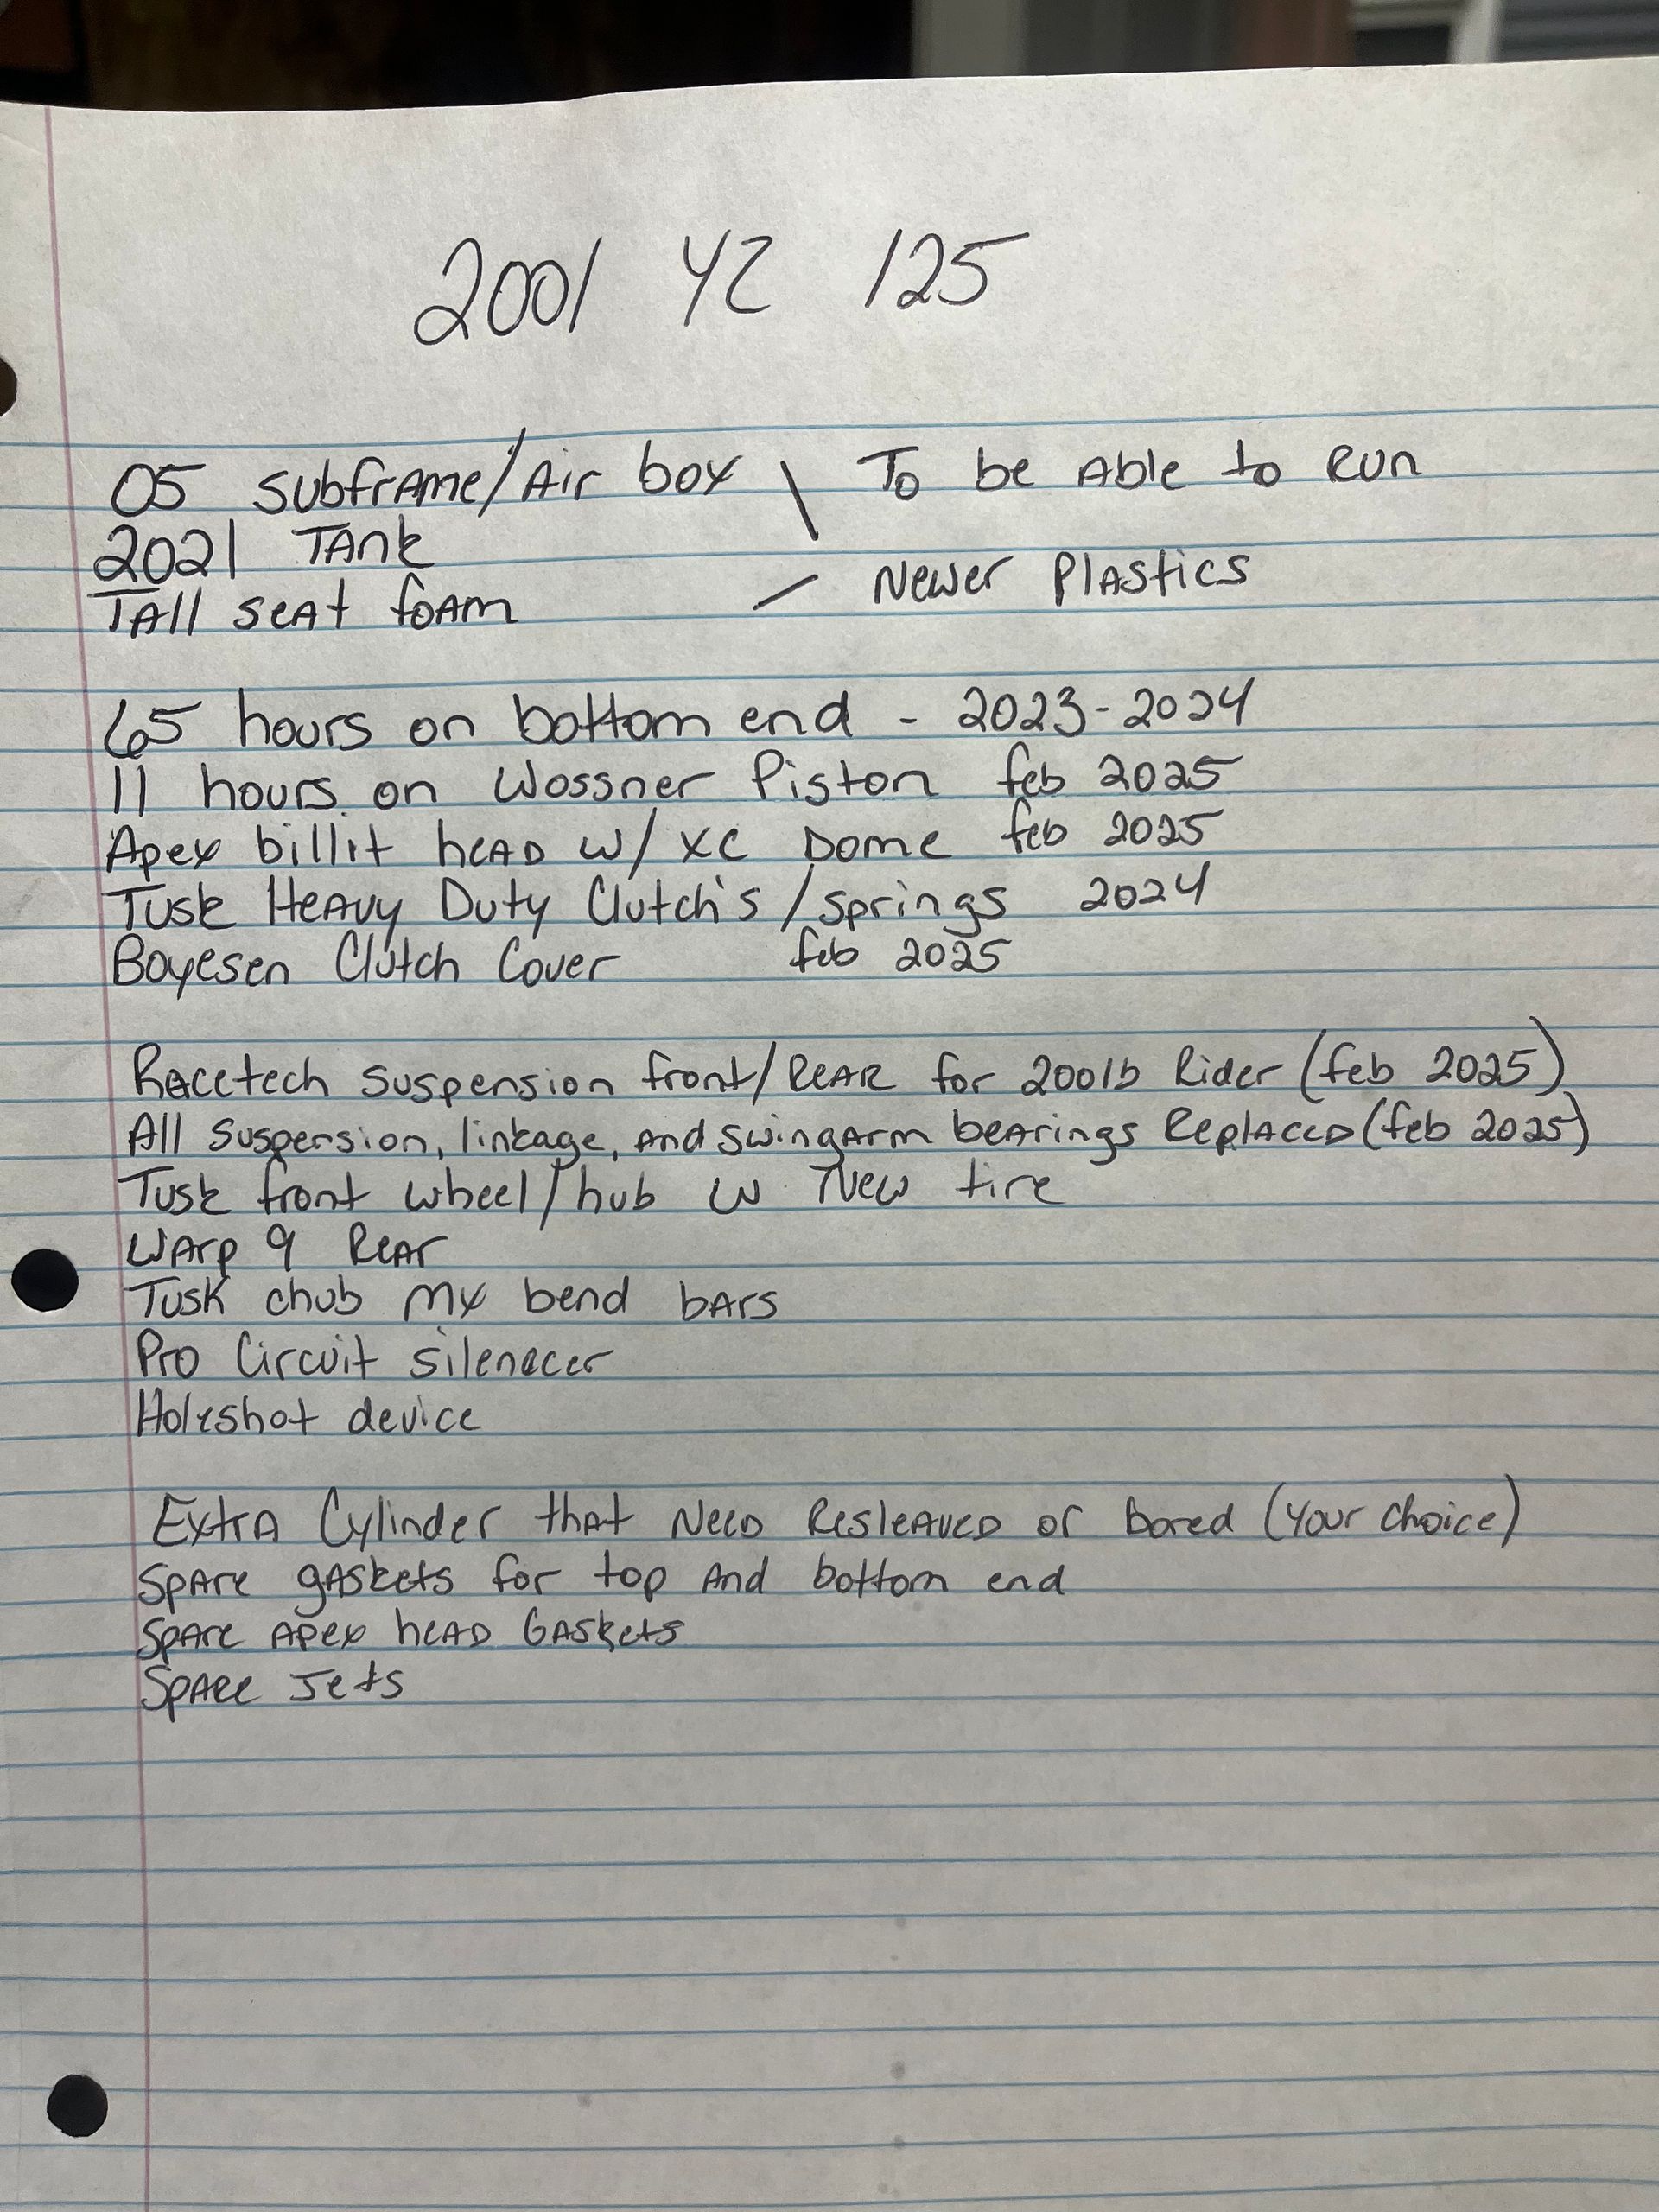 2001 YZ 125
05 Subframe/Air box \ To be Able to Run
2021 Tank
Tall seat foam / Newer Plastics
65 hours on bottom end - 2023-2024
11 hours on Wossner Piston feb 2025
Apex billit head w/ XC Dome feb 2025
Tusk Heavy Duty Clutch's / springs 2024
Boyesen Clutch Cover feb 2025
Racetech suspension front/Rear for 200lb Rider (feb 2025)
All Suspension, linkage, and swingarm bearings Replaced (feb 2025)
Tusk front wheel/hub w New tire
Warp 9 Rear
Tusk chub mx bend bars
Pro Circuit silenecer
Holeshot device
Extra Cylinder that Need Resleaved or bored (Your Choice)
Spare gaskets for top And bottom end
Spare Apex head Gaskets
Spare Jets